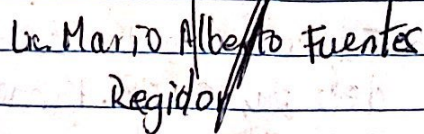 Lic. Mario Alberto Fuentes
Regidor